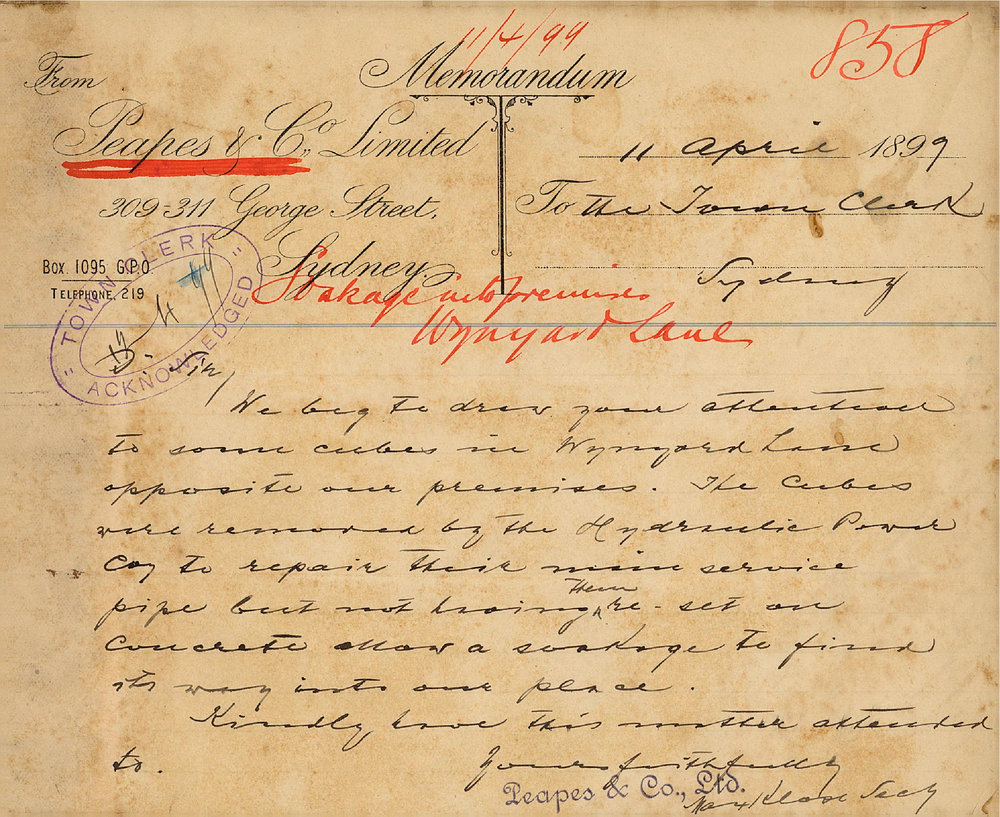 11/4/99
858
From
Memorandum
Peapes & Co., Limited
309-311 George Street,
Sydney,
Box. 1095 G.P.O.
Telephone, 219
11 April 1899
To the Town Clerk
Sydney
"TOWN CLERK"
ACKNOWLEDGED
Soakage into premises
Wynyard Lane
D. Sir/
We beg to draw your attention
to some cubes in Wynyard Lane
opposite our premises. The Cubes
were removed by the Hydraulic Power
Coy to repair their main service
pipe but not having them re-set on
concrete allow a soakage to find
its way into our place.
Kindly have this matter attended
to.
Yours faithfully
Peapes & Co., Ltd.
Secy